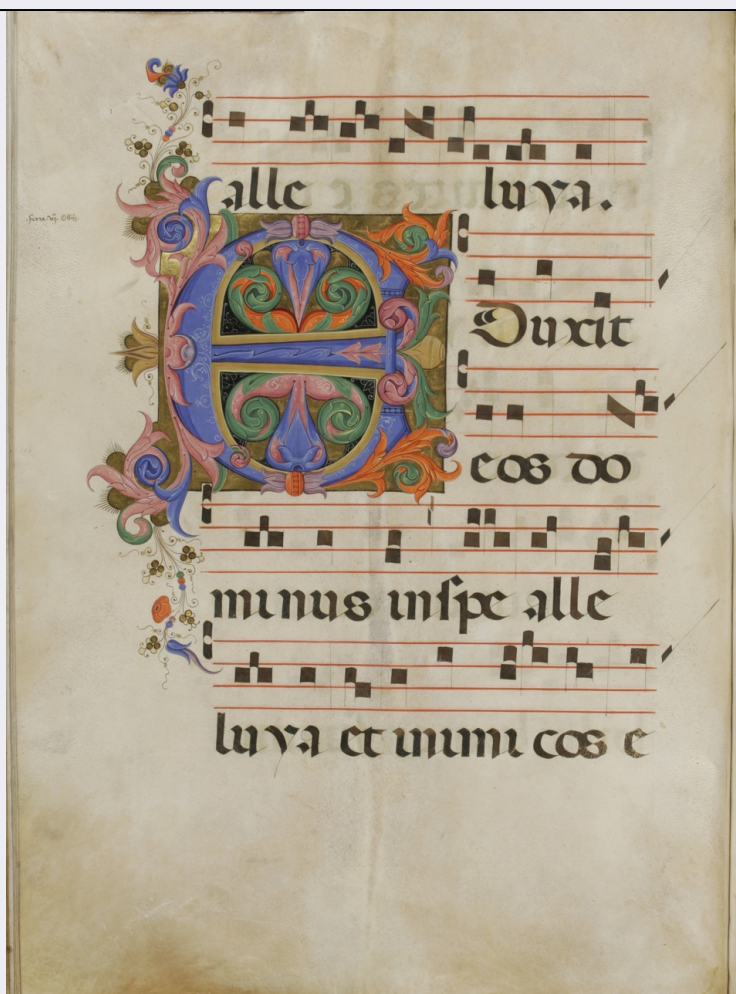 alle luya.
Eduxit
eos do
minus inspe alle
luya et inimi cos e